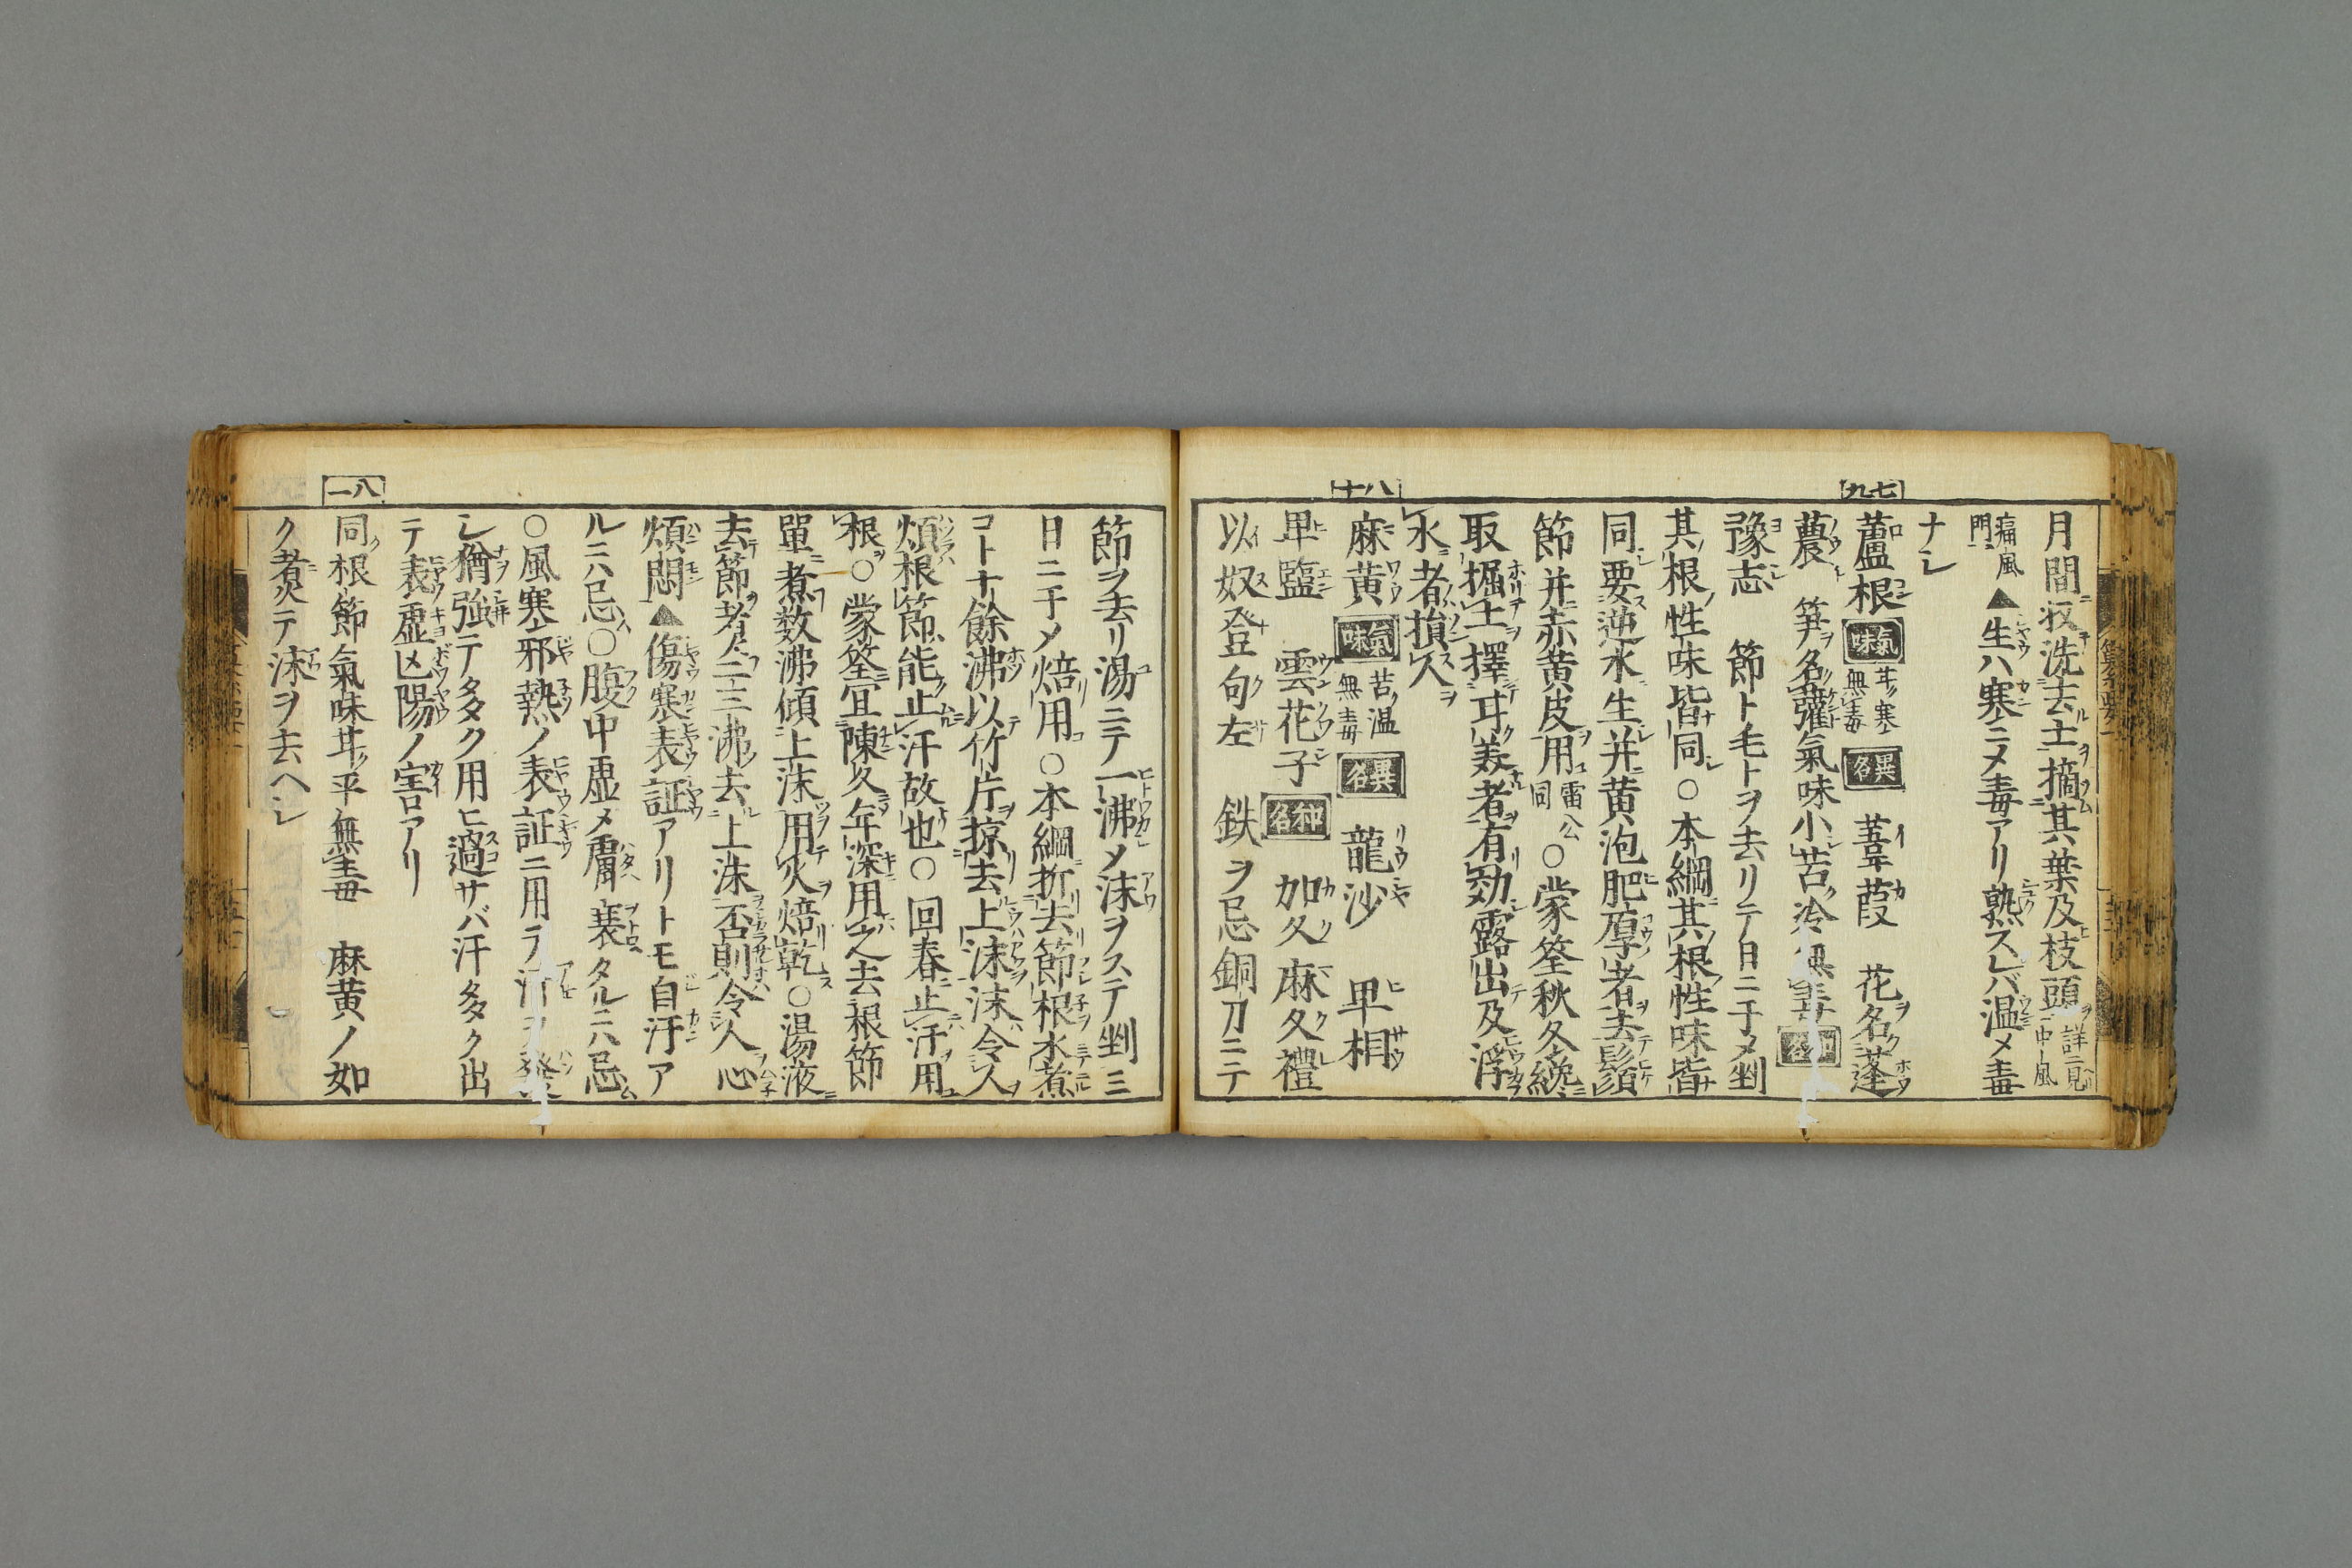 七九
八十
月間収洗去土摘其葉及枝頭詳見中風
痛風門▲生ハ寒ニメ毒アリ熟スレバ温メ毒
ナシ
蘆根 氣味 甘寒無毒 異名 葦葭 花名蓬
蕽 笋名虇氣味小苦冷無毒 和名
豫志 節ト毛トヲ去リテ日ニ干メ剉
其根性味皆同○本綱其根性味皆
同要逆水生并黄泡肥厚者去鬚
節并赤黄皮用雷公同○蒙筌秋冬纔
取掘土擇甘美者有効露出及浮
水者損人
麻黄 氣味 苦温無毒 異名 龍沙 卑相
卑鹽 雲花子 和名 加久麻久禮
以奴登句左 鉄ヲ忌銅刀ニテ
八一
節ヲ去リ湯ニテ一沸メ沫ヲステ剉ミ
日ニ干メ焙用○本綱折去節根水煮
コト十餘沸以竹片掠去上沫沫令人
煩根節能止汗故也○回春止汗用
根○蒙筌宜陳久年深用之去根節
單煮数沸傾上沫用火焙乾○湯液
去節煮二三沸去上沫否則令人心
煩悶▲傷寒表証アリトモ自汗ア
ルニハ忌○腹中虚メ膚衰タルニハ忌
○風寒邪熱ノ表証ニ用テ汗ヲ發
シ猶強テ多ク用ヒ過サバ汗多ク出
テ表虚亡陽ノ害アリ
同根節氣味甘平無毒 麻黄ノ如
ク煮テ沫ヲ去ヘシ